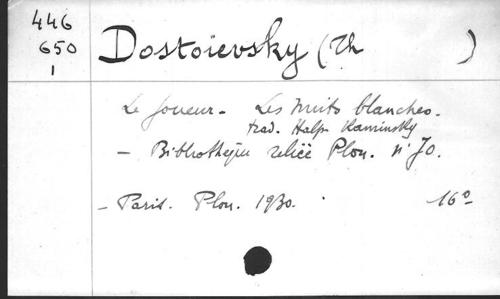 446
650
1
Dostoievsky (Th )
Le Joueur - Les Nuits blanches.
trad. Halp. Kaminsky
- Bibliothèque reliée Plon. n° 70.
- Paris. Plon. 1930. 16°